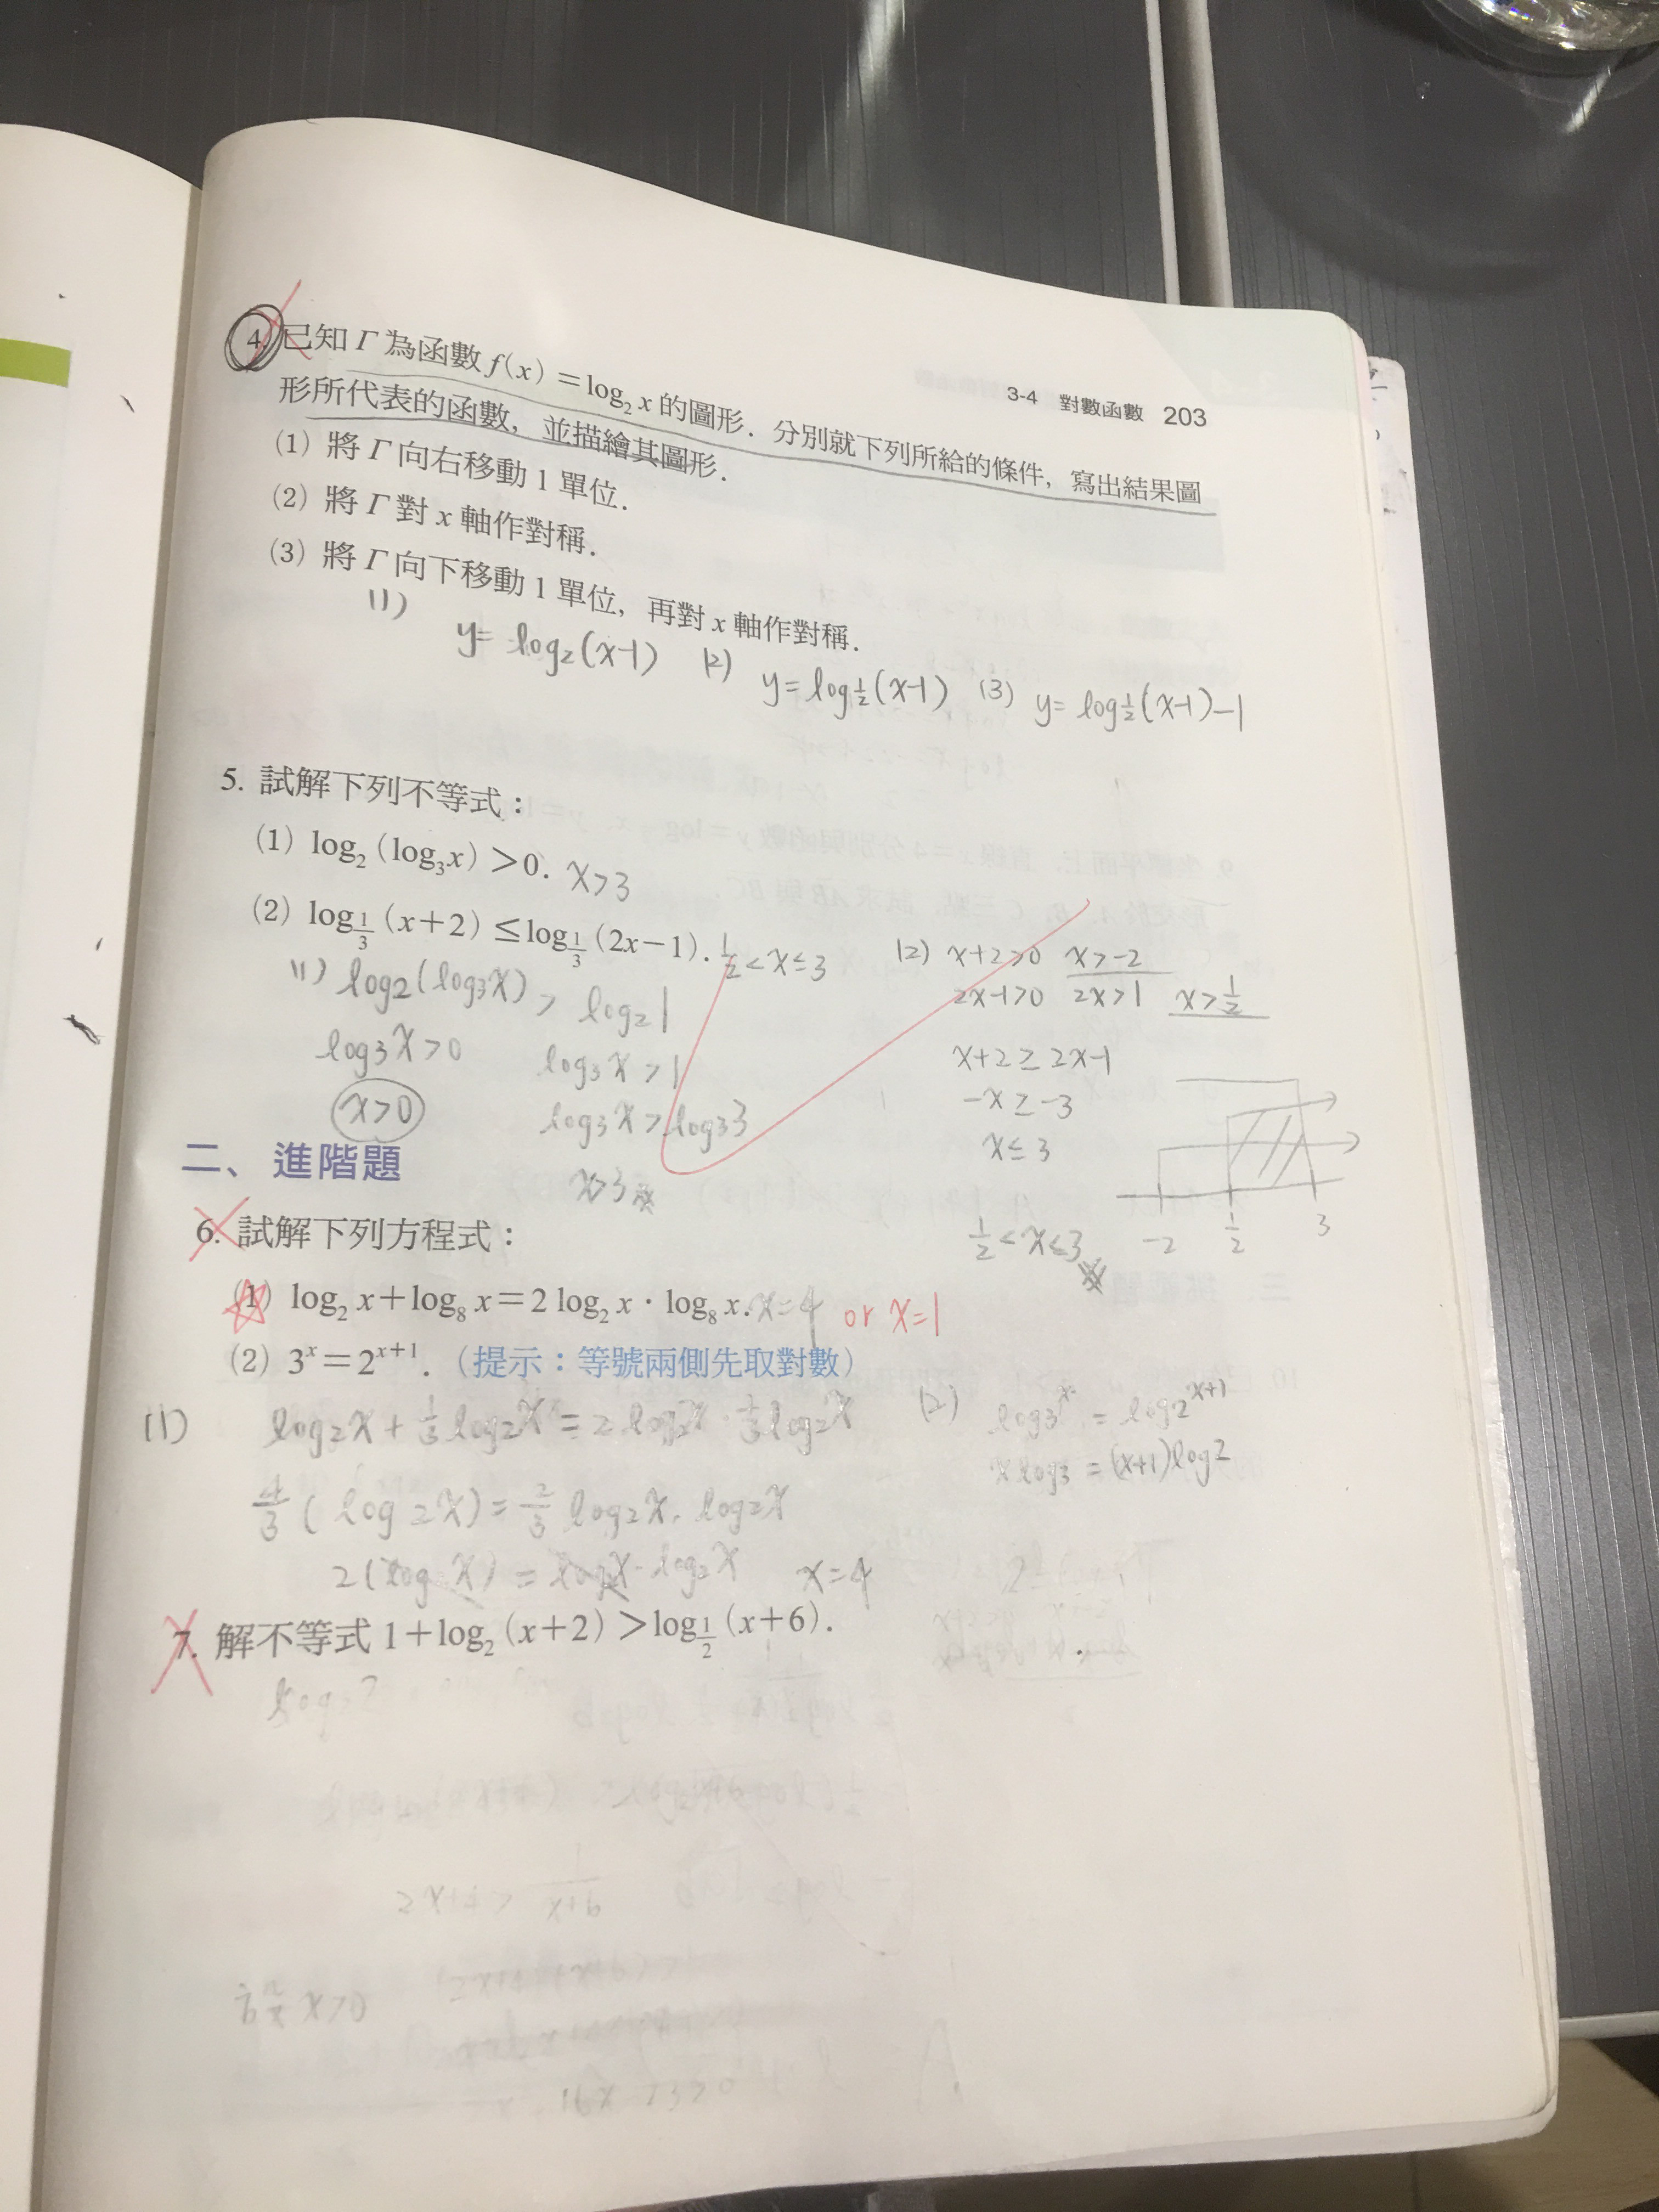 3-4 對數函數 203
4. 已知 Γ 為函數 f(x)=log₂ x 的圖形．分別就下列所給的條件，寫出結果圖
形所代表的函數，並描繪其圖形．
(1) 將 Γ 向右移動 1 單位．
(2) 將 Γ 對 x 軸作對稱．
(3) 將 Γ 向下移動 1 單位，再對 x 軸作對稱．
(1) y= log₂(x-1) (2) y=log½(x-1) (3) y= log½(x-1)-1
5. 試解下列不等式：
(1) log₂(log₃x)>0. x>3
(2) log⅓(x+2)≤log⅓(2x-1). ½<x≤3
(1) log₂(log₃x) > log₂1
log₃x>0 log₃x>1
x>0 log₃x>log₃3
x>3
(2) x+2>0 x>-2
2x-1>0 2x>1 x>½
x+2≥2x-1
-x≥-3
x≤3
-2 ½ 3
½<x≤3
二、進階題
6. 試解下列方程式：
(1) log₂ x+log₈ x=2 log₂ x · log₈ x. x=4 or x=1
(2) 3ˣ=2ˣ⁺¹.（提示：等號兩側先取對數）
(1) log₂x+⅓log₂x=2log₂x·⅓log₂x
4/3(log₂x)=⅔log₂x·log₂x
2(log₂x)=log₂x·log₂x x=4
(2) log3ˣ=log2ˣ⁺¹
xlog3=(x+1)log2
7. 解不等式 1+log₂(x+2)>log½(x+6).